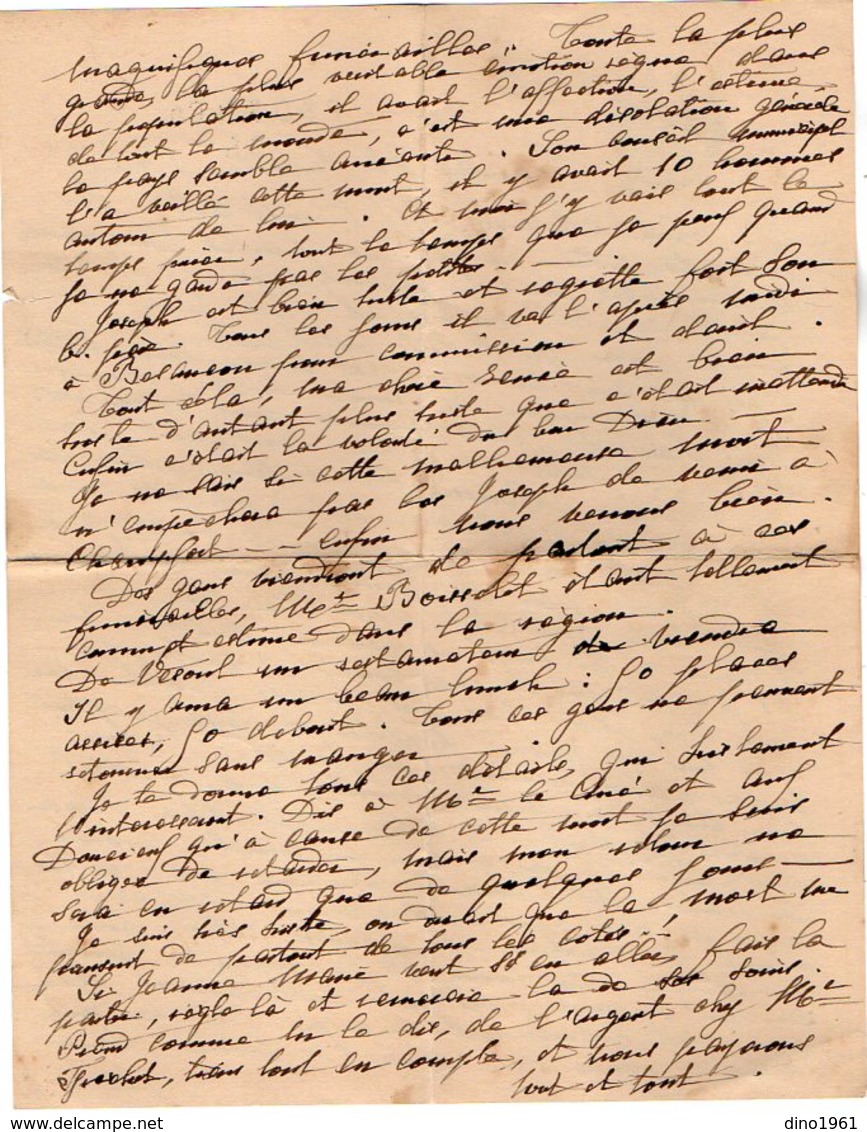 magnifiques funérailles. Toute la plus
grande, la plus véritable émotion règne dans
la population, il avait l'affection, l'estime
de tout le monde, c'est une désolation générale
le pays semble anéanti. Son conseil municipal
l'a veillé cette nuit, il y avait 10 hommes
autour de lui. Et moi j'y vais tout le
temps prier, tout le temps que je peux quand
je ne garde pas les petites.
Joseph est bien triste et regrette fort son
b. père. Tous les jours il va l'après midi
à Besançon pour commission et
Tout cela, ma chère est bien
triste d'autant plus triste que c'était inattendu
Enfin c'était la volonté du bon Dieu. —
Je ne sais si cette malheureuse mort
n'empêchera pas les Joseph de venir à
-- enfin nous verrons bien.
Des gens viendront de partout à ces
funérailles, Mr Boisselet étant tellement
connu et estimé dans la région.
De Vesoul un viendra
Il y aura un beau lunch : 50 places
assises, 50 debout. Tous ces gens ne peuvent
retourner sans manger —
Je te donne tous ces détails, qui sûrement
t'intéresseront. Dis à Mr le Curé et aux
qu'à cause de cette mort je suis
obligée de retarder, mais mon retour ne
sera en retard que de quelques jours —
Je suis très triste, on dirait que la mort me
poursuit de partout de tous les côtés..!
Si Jeanne Marie veut s'en aller, fais la
partir, règle là et remercie-la de ses soins
Prend comme tu le dis, de l'argent chez Mr
tiens tout en compte, et nous payerons
tout et tout.
dino1961